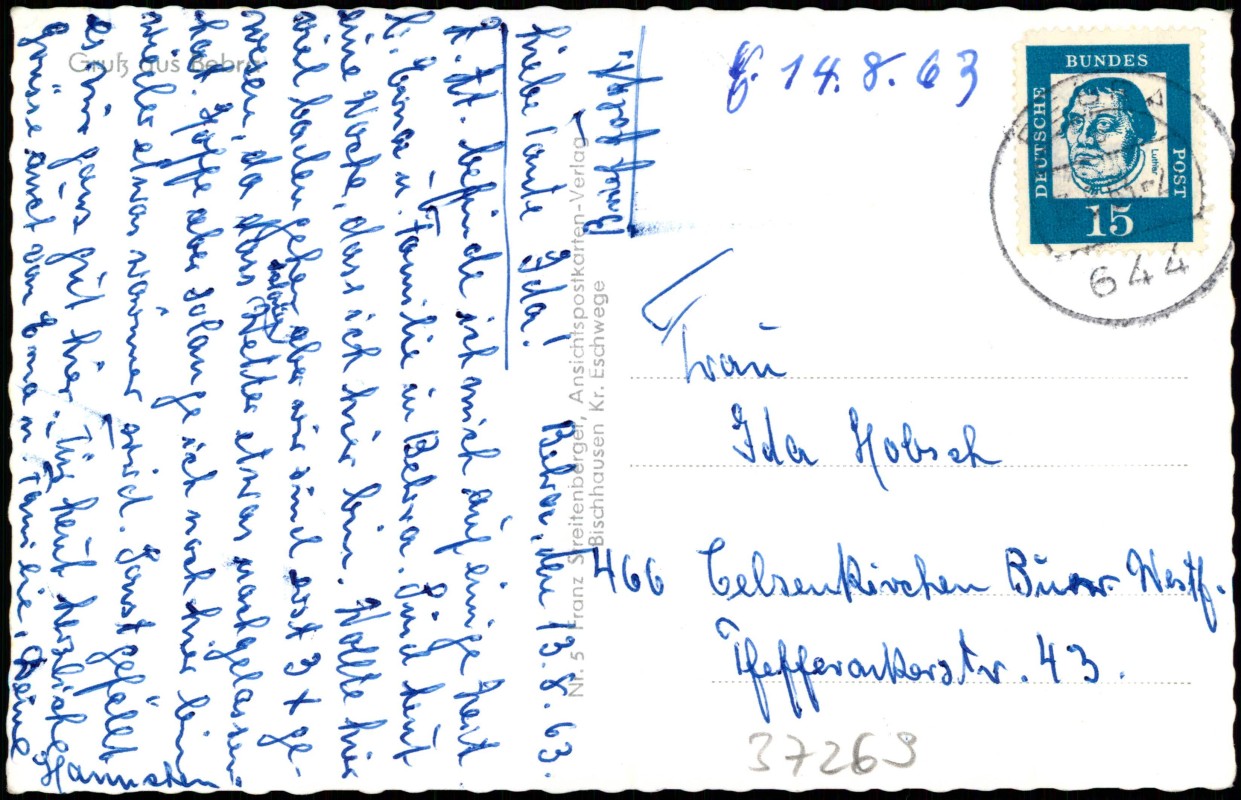 Gruß aus Bebra
Bebra, den 13.8.63.
Liebe Tante Ida!
Z. Zt. befinde ich mich auf einige Zeit
b. Erna u. Familie in Bebra. Sind heut
eine Woche, dass ich hier bin. Wollte hier
viel baden gehen aber wir sind erst 3 x ge-
wesen, da dass Wetter etwas nachgelassen
hat. Hoffe aber solange ich noch hier bin
wieder etwas wärmer wird. Sonst gefällt
es mir ganz gut hier. Für heut herzliche
Grüsse auch von Erna u. Familie, Deine
Hannchen
Nr. 5 Franz Streitenberger, Ansichtspostkarten-Verlag
Bischhausen Kr. Eschwege
E. 14.8.63
DEUTSCHE
BUNDES
POST
Luther
15
644
Frau
Ida Hobsch
466 Gelsenkirchen Buer Westf.
Pfefferackerstr. 43.
37269